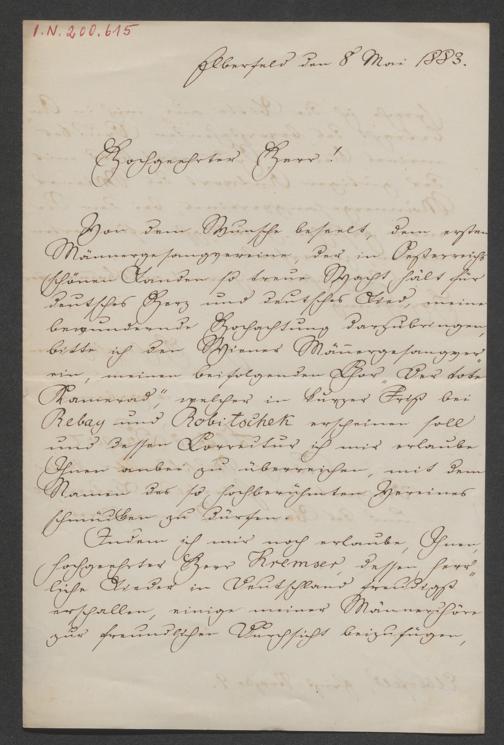 I.N. 200.615
Elberfeld den 8 Mai 1883.
Hochgeehrter Herr!
Von dem Wunsche beseelt, dem ersten
Männergesangvereine, der in Oesterreichs
schönen Landen so treue Wacht hält für
deutsches Herz und deutsches Lied, meine
bewundernde Hochachtung darzubringen,
bitte ich den Wiener Männergesangver-
ein, meinen beifolgenden Chor „Der tote
Kamerad", welcher in kurzer Frist bei
Rebay und Robitschek erscheinen soll
und dessen Correktur ich mir erlaube
Ihnen anbei zu überreichen, mit dem
Namen des so hochberühmten Vereines
schmücken zu dürfen.
Indem ich mir noch erlaube, Ihnen,
hochgeehrter Herr Kremser, dessen herr-
liche Lieder in Deutschland freudigst
erschallen, einige meiner Männerchöre
zur freundlichen Durchsicht beizufügen,